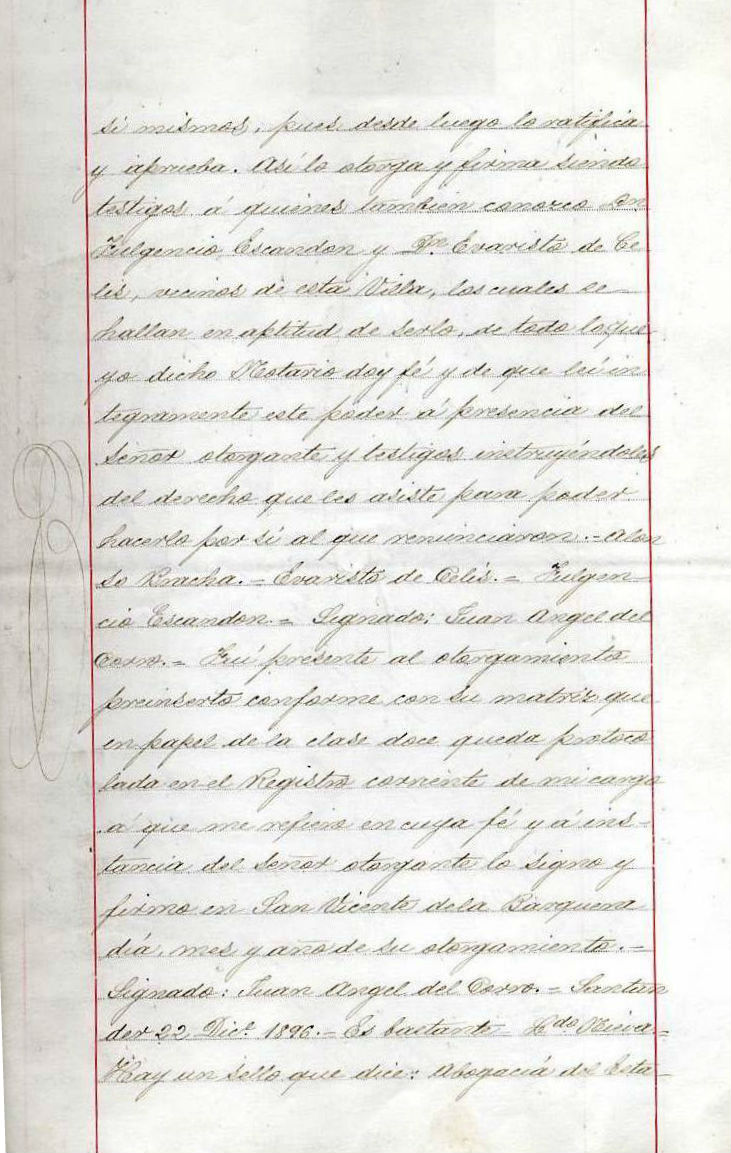 si mismos, pues desde luego lo ratifica
y aprueba. Así lo otorga y firma siendo
testigos á quienes tambien conozco Dn
Fulgencio Escandon y Dn Evaristo de Ce-
lis, vecinos de esta Villa, los cuales se
hallan en aptitud de serlo, de todo lo que
yo dicho Notario doy fé y de que leí in
tegramente este poder á presencia del
Señor otorgante y testigos instruyéndoles
del derecho que les asiste para poder
hacerlo por sí al que renunciaron.=Alon
so Pracha.= Evaristo de Celis.= Fulgen-
cio Escandon.= Signado: Juan Angel del
Corro.= Fuí presente al otorgamiento
preinserto conforme con su matriz que
en papel de la clase doce queda protoco
lada en el Registro corriente de mi cargo
á que me refiero en cuya fé y á ins-
tancia del Señor otorgante lo signo y
firmo en San Vicente de la Barquera
día, mes y año de su otorgamiento.=
Signado: Juan Angel del Corro.= Santan
der 22 Dice. 1896.= Es bastante= Ldo Nieva=
Hay un sello que dice: Abogacía del Esta-